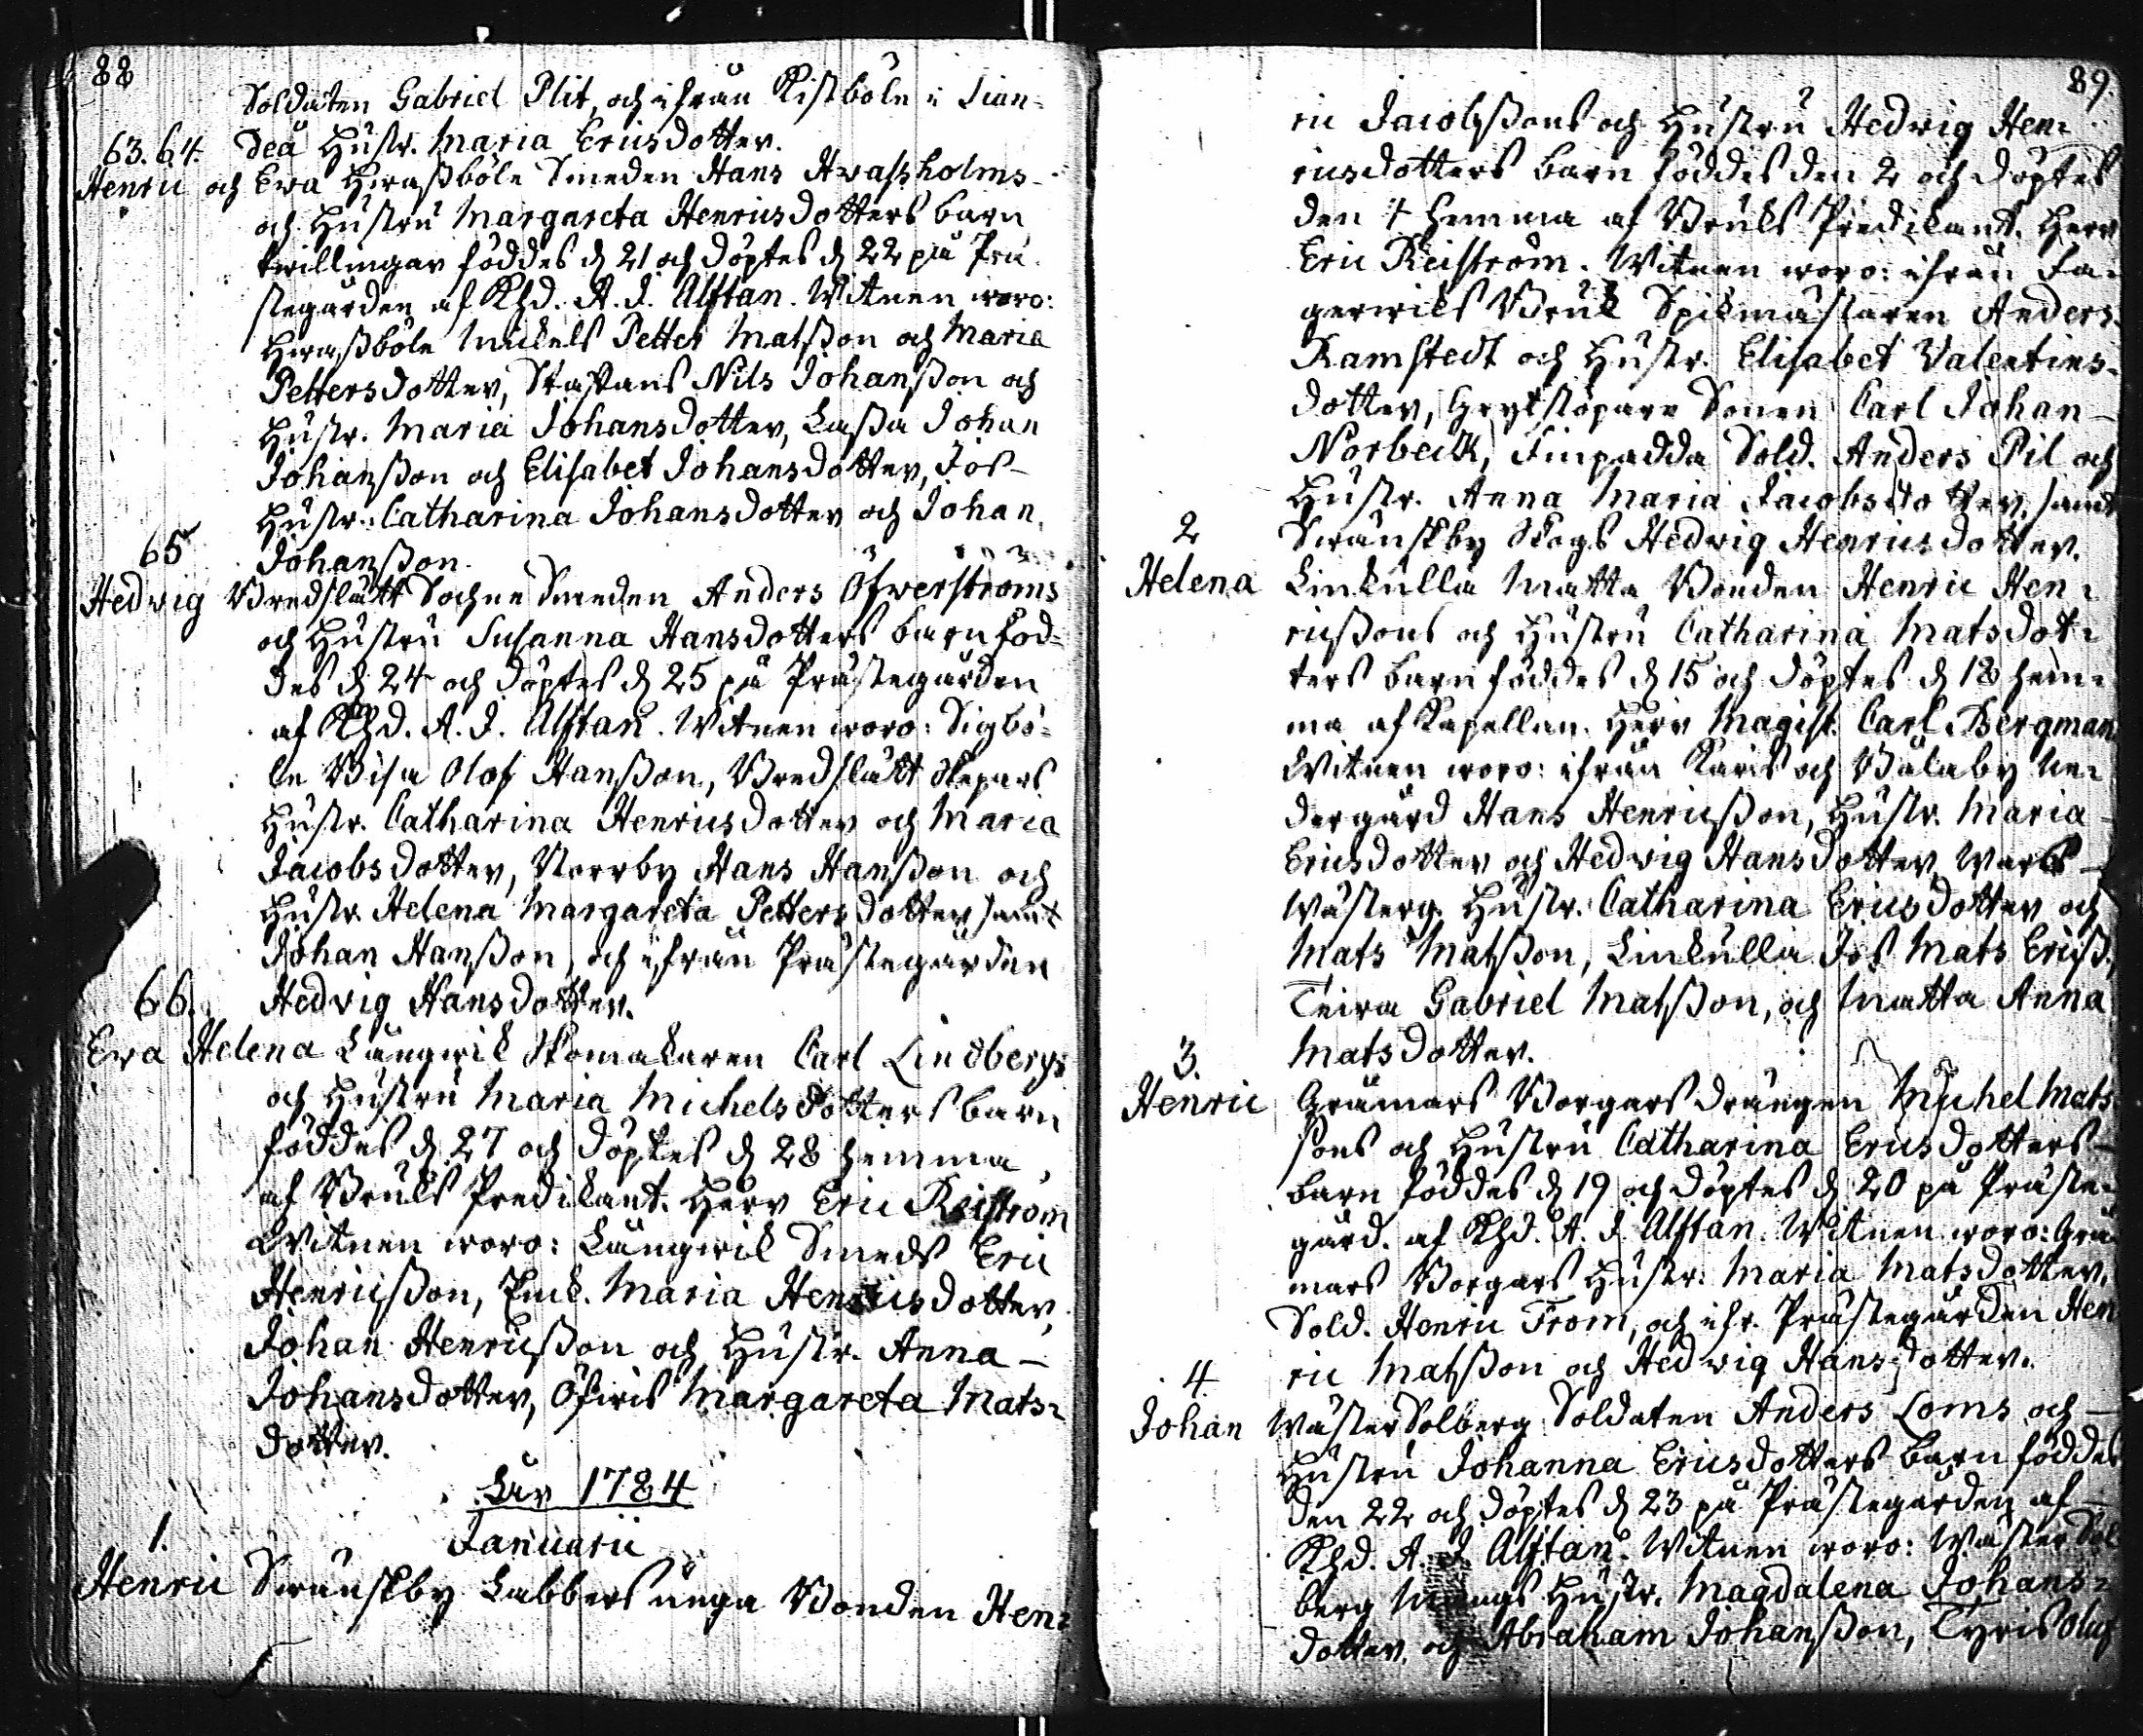 88
Soldaten Gabriel Plit, och ifrån Kistböle i Sian-
deå Hustr. Maria Ericsdotter.
63. 64.
Henric och Ewa Hwaßböle Smeden Hans Hvassholms
och Hustru Margareta Henricsdotters barn
twillingar föddes d 21 och döptes d 22 på Prä-
stegården af Khd. A. J. Alftan. Witnen woro:
Hwaßböle Mickels Petter Matsson och Maria
Pettersdotter, Staffans Nils Johansson och
Hustr. Maria Johansdotter, Lassa Johan
Johansson och Elisabet Johansdotter, Jos-
Hustr. Catharina Johansdotter och Johan
Johansson.
65
Hedvig Bredslätt Sochne Smeden Anders Öfwerströms
och Hustru Susanna Hansdotters barn föd-
des d 24 och döptes d 25 på Prästegården
af Khd. A. J. Alftan. Witnen woro: Sigbö-
le Bisa Olof Hansson, Bredslätt Skepars
Hustr. Catharina Henricsdotter och Maria
Jacobsdotter, Norrby Hans Hansson och
Hustr. Helena Margareta Pettersdotter samt
Johan Hansson, och ifrån Prästegården
Hedvig Hansdotter.
66.
Ewa Helena Långwik Skomakaren Carl Lindbergs
och Hustru Maria Michelsdotters barn
föddes d 27 och döptes d 28 hemma
af Bruks Predikant. Herr Eric Reiström
Witnen woro: Långwik Smeds Eric
Henricsson, Enk. Maria Henricsdotter,
Johan Henricsson och Hustr. Anna
Johansdotter, Öfwis Margareta Mats-
dotter.
Åhr 1784
Januarii
1.
Henric Swänskby Labbers unga Bonden Hen-
89
ric Jacobssons och Hustru Hedvig Hen-
ricsdotters barn föddes den 2 och döptes
den 4 hemma af Bruks Predikant. Herr
Eric Reiström. Witnen woro: ifrån Fa-
gerwiks Bruk Spikmästaren Anders
Ramstedt och Hustr. Elisabet Valentins-
dotter, Grytstöpare Sonen Carl Johan
Norbeck, Finpadda Sold. Anders Pil och
Hustr. Anna Maria Jacobsdotter, samt
Swänskby Skogs Hedvig Henricsdotter.
2
Helena Linkulla Matta Bonden Henric Hen-
ricssons och Hustru Catharina Matsdot-
ters barn föddes d 15 och döptes d 18 hem-
ma af Kapellan. Herr Magist. Carl Bergman
Witnen woro: ifrån Karis och Bålaby Ne-
dergård Hans Henricsson, Hustr. Maria
Ericsdotter och Hedvig Hansdotter, Wars
Wästerg. Hustr. Catharina Ericsdotter och
Mats Matsson, Linkulla Jos Mats Ericss.,
Teira Gabriel Matsson, och Matta Anna
Matsdotter.
3.
Henric Gråmars Borgars drängen Michel Mats-
sons och Hustru Catharina Ericsdotters
barn föddes d 19 och döptes d 20 på Präste-
gård. af Khd. A. J. Alftan. Witnen woro: Grå-
mars Borgars Hustr. Maria Matsdotter,
Sold. Henric From, och ifr. Prästegården Hen
ric Matsson och Hedvig Hansdotter.
4.
Johan Wäster Solberg Soldaten Anders Loms och
Hustru Johanna Ericsdotters barn föddes
den 22 och döptes d 23 på Prästegården af
Khd. A. J. Alftan. Witnen woro: Wäster Sol
berg Hustr. Magdalena Johans-
dotter, och Abraham Johansson, Tyris Oluf